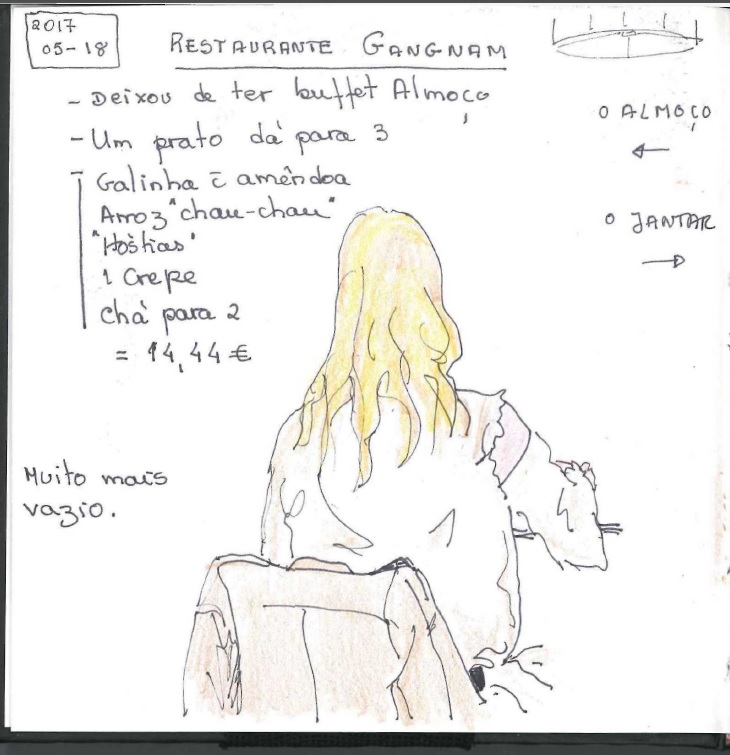 2017
05-18
RESTAURANTE GANGNAM
- Deixou de ter buffet Almoço
- Um prato dá para 3
- Galinha c̄ amêndoa
Arroz "chau-chau"
"Hóstias"
1 Crepe
chá para 2
= 14,44 €
Muito mais
vazio.
O ALMOÇO
←
O JANTAR
→